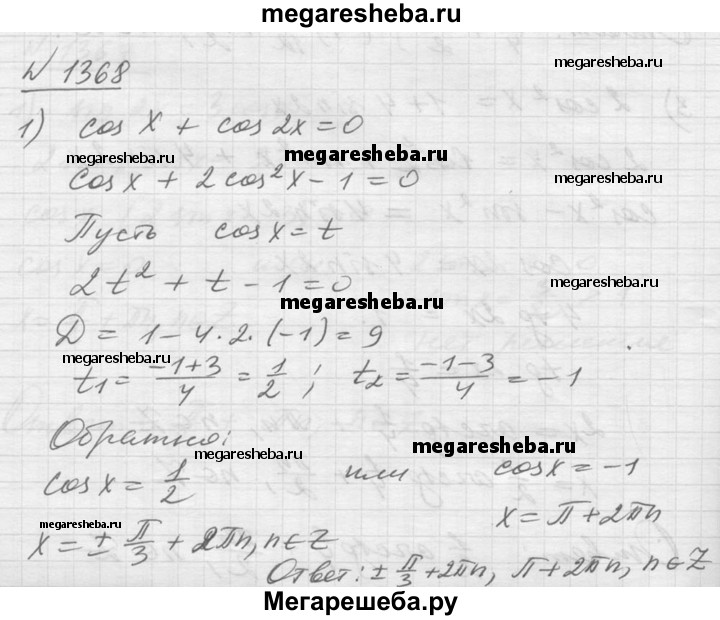 megaresheba.ru
№ 1368
1) cos x + cos 2x = 0
megaresheba.ru megaresheba.ru
cos x + 2 cos² x - 1 = 0 megaresheba.ru
Пусть cos x = t
2t² + t - 1 = 0
megaresheba.ru megaresheba.ru
D = 1 - 4 · 2 · (-1) = 9
megaresheba.ru
t₁ = (-1+3)/4 = 1/2 ; t₂ = (-1-3)/4 = -1
Обратно:
megaresheba.ru megaresheba.ru
cos x = 1/2 или cos x = -1
x = π + 2πn
megaresheba.ru
x = ± π/3 + 2πn, n ∈ Z
Ответ: ± π/3 + 2πn, π + 2πn, n ∈ Z
Мегарешеба.ру